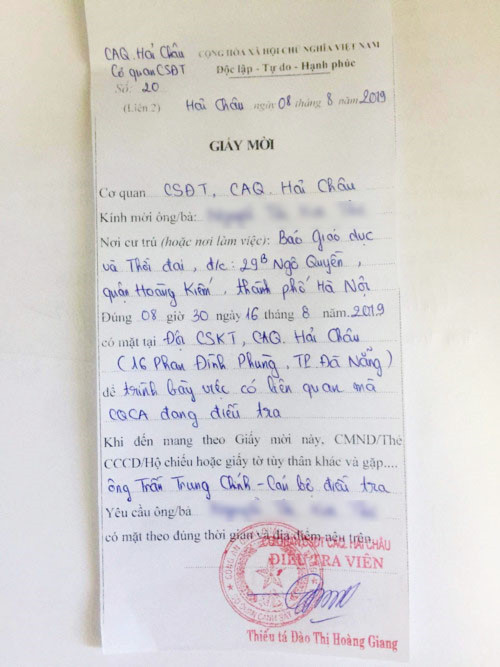 CAQ. Hải Châu
Cơ quan CSĐT
Số: 20
(Liên 2)
CỘNG HÒA XÃ HỘI CHỦ NGHĨA VIỆT NAM
Độc lập - Tự do - Hạnh phúc
Hải Châu ngày 08 tháng 8 năm 2019
GIẤY MỜI
Cơ quan CSĐT, CAQ. Hải Châu
Kính mời ông/bà:
Nơi cư trú (hoặc nơi làm việc): Báo Giáo dục
và Thời đại, đ/c: 29B Ngô Quyền,
quận Hoàng Kiếm, thành phố Hà Nội
Đúng 08 giờ 30 ngày 16 tháng 8 năm 2019
có mặt tại Đội CSKT, CAQ. Hải Châu
(16 Phan Đình Phùng, TP. Đà Nẵng)
để trình bày việc có liên quan mà
CQCA đang điều tra
Khi đến mang theo Giấy mời này, CMND/Thẻ
CCCD/Hộ chiếu hoặc giấy tờ tùy thân khác và gặp....
ông Trần Trung Chính - Cán bộ điều tra
Yêu cầu ông/bà
có mặt theo đúng thời gian và địa điểm nêu trên.
CƠ QUAN CSĐT CAQ. HẢI CHÂU
ĐIỀU TRA VIÊN
Thiếu tá Đào Thị Hoàng Giang